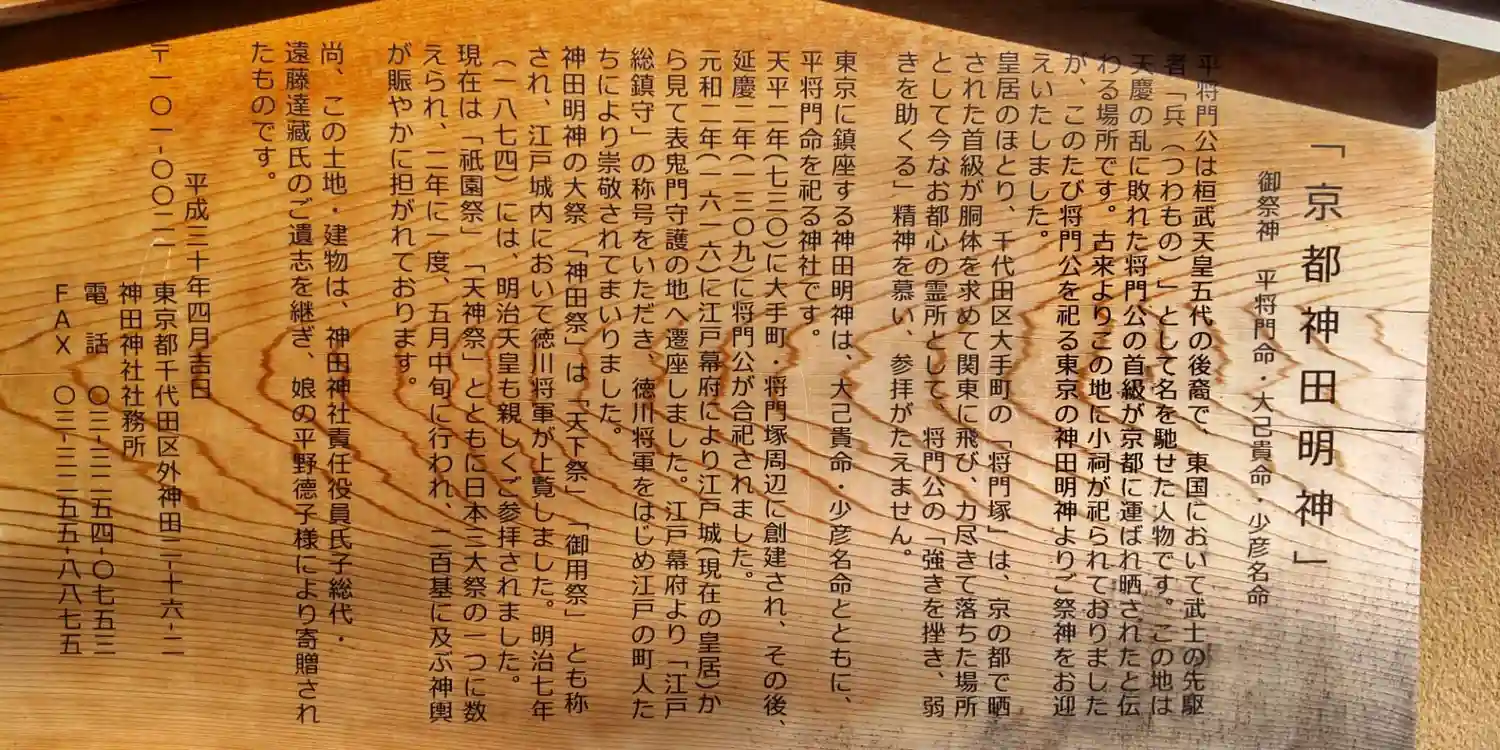 「京都神田明神」
御祭神　平将門命・大己貴命・少彦名命
平将門公は桓武天皇五代の後裔で、東国において武士の先駆
者「兵（つわもの）」として名を馳せた人物です。この地は
天慶の乱に敗れた将門公の首級が京都に運ばれ晒されたと伝
わる場所です。古来よりこの地に小祠が祀られておりました
が、このたび将門公を祀る東京の神田明神よりご祭神をお迎
えいたしました。
皇居のほとり、千代田区大手町の「将門塚」は、京の都で晒
された首級が胴体を求めて関東に飛び、力尽きて落ちた場所
として今なお都心の霊所として、将門公の「強きを挫き、弱
きを助くる」精神を慕い、参拝がたえません。
東京に鎮座する神田明神は、大己貴命・少彦名命とともに、
平将門命を祀る神社です。
天平二年(七三〇)に大手町・将門塚周辺に創建され、その後、
延慶二年(一三〇九)に将門公が合祀されました。
元和二年(一六一六)に江戸幕府により江戸城(現在の皇居)か
ら見て表鬼門守護の地へ遷座しました。江戸幕府より「江戸
総鎮守」の称号をいただき、徳川将軍をはじめ江戸の町人た
ちにより崇敬されてまいりました。
神田明神の大祭「神田祭」は「天下祭」「御用祭」とも称
され、江戸城内において徳川将軍が上覧しました。明治七年
（一八七四）には、明治天皇も親しくご参拝されました。
現在は「祇園祭」「天神祭」とともに日本三大祭の一つに数
えられ、二年に一度、五月中旬に行われ、二百基に及ぶ神輿
が賑やかに担がれております。
尚、この土地・建物は、神田神社責任役員氏子総代・
遠藤達藏氏のご遺志を継ぎ、娘の平野德子様により寄贈され
たものです。
平成三十年四月吉日
〒一〇一-〇〇二一　東京都千代田区外神田二-十六-二
神田神社社務所
電話　〇三-三二五四-〇七五三
FAX　〇三-三二五五-八八七五